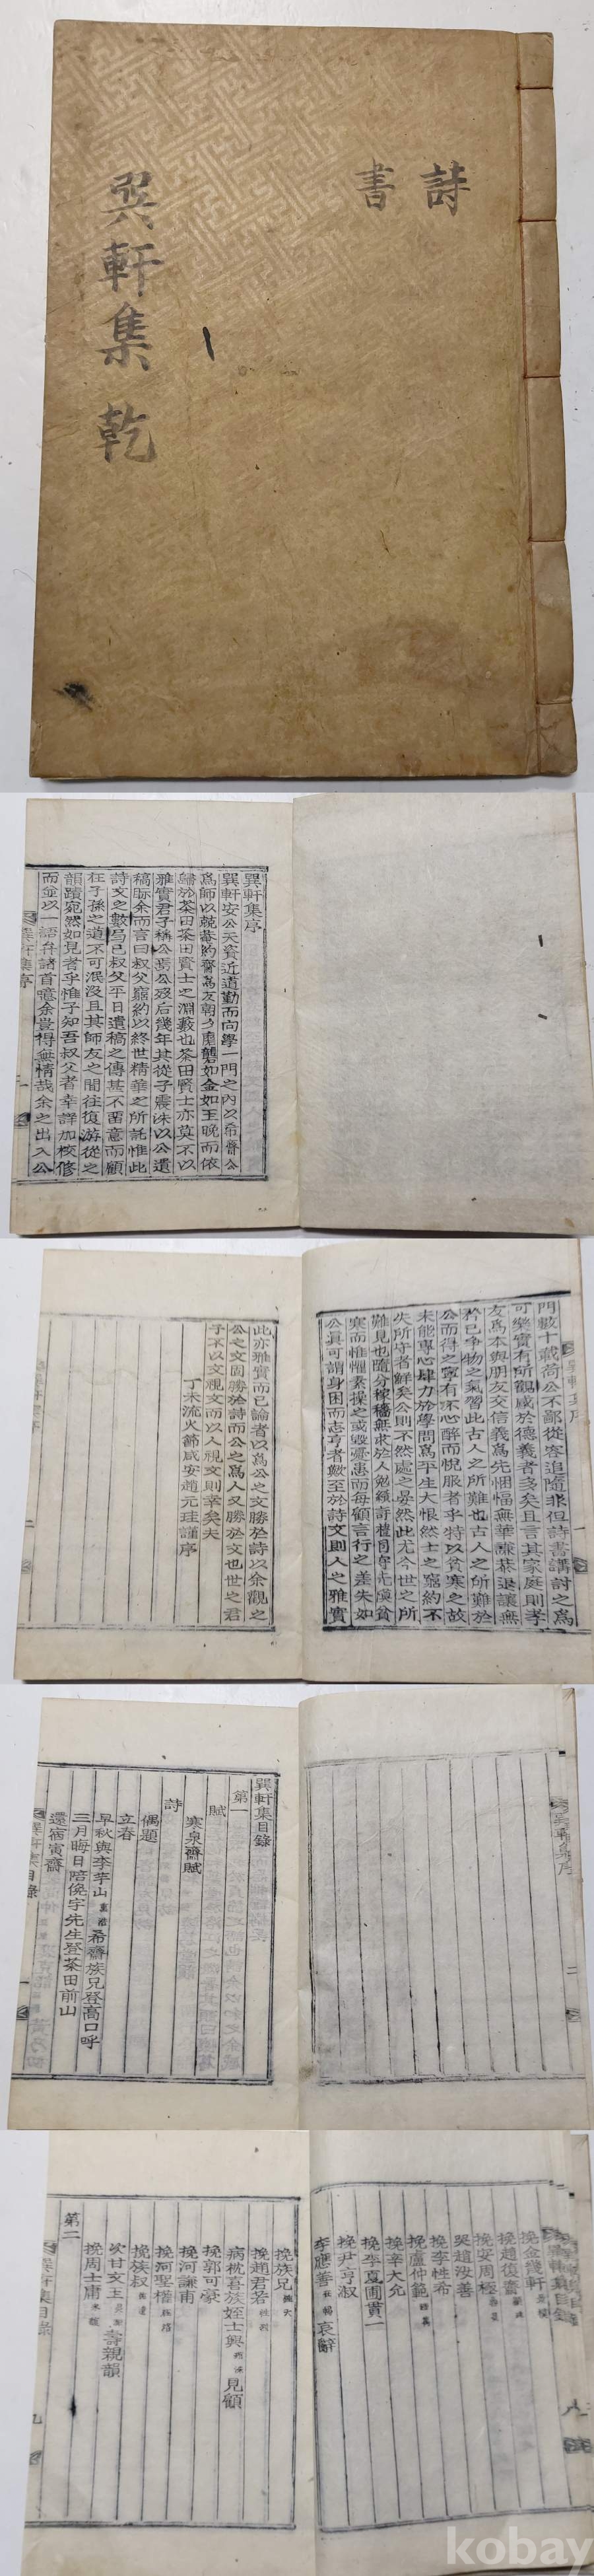 詩
書
巽軒集 乾
巽軒集序
巽軒安公天資近道勤而向學一門之內以希齋公
爲師以兢菴約齋爲友朝夕磨礱如金如玉晩而依
歸於茶田茶田賢士之淵藪也茶田賢士亦莫不以
雅實君子稱公焉公歿后幾年其從子震洙以公遺
稿眎余而言曰叔父窮約以終世精華之所託惟此
詩文之數局已叔父平日遺稿之傳甚不留意而顧
在子孫之道不可泯沒且其師友之間往復游從之
韻蹟宛然如見者乎惟子知吾叔父者幸詳加校修
而並以一語弁諸首噫余豈得無情哉余之出入公
巽軒集序
一
門數十載荷公不鄙從容追隨非但詩書講討之爲
可樂實有所觀感於德義者多矣且言其家庭則孝
友爲本與朋友交信義爲先悃愊無華謙恭退讓無
矜已爭物之氣習此古人之所難也古人之所難於
公而得之寧有不心醉而悅服者乎特以貧寒之故
未能專心肆力於學問爲平生大恨然士之窮約不
失所守者鮮矣公則不然處之晏然此尤今世之所
難見也隨分稼穡無求於人
寒而惟懼素操之或毀憂患而每顧言行之差失如
公眞可謂身困而志亨者歟至於詩文則人之雅實
此亦雅實而已論者以爲公之文勝於詩以余觀之
公之文固勝於詩而公之爲人又勝於文也世之君
子不以文視文而以人視文則幸矣夫
丁未流火節咸安趙元珪謹序
二
巽軒集序
二
巽軒集目錄
第一
賦
寒泉齋賦
詩
偶題
立春
早秋與李芋山 希齋族兄登高口呼
三月晦日陪俛宇先生登茶田前山
還宿寅齋
巽軒集目錄
一
挽金幾軒
挽趙復齋
挽安周極
哭趙汝善
挽李性希
挽盧仲範
挽辛大允
挽李夏圃貫一
挽尹亨淑
李應善 哀辭
八
挽族兄
挽趙君若
病枕喜族姪士興 見顧
挽郭可豪
挽河謙甫
挽河聖權
挽族叔
次甘文玉 壽親韻
挽周士庸
第二
巽軒集目錄
九
kobay